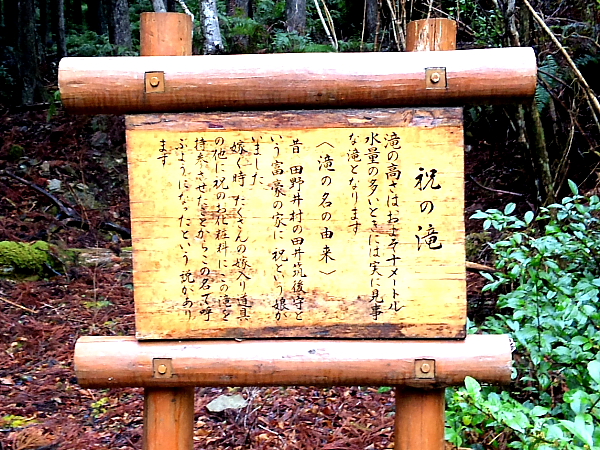 祝の滝
滝の高さはおよそ十メートル
水量の多いときには実に見事
な滝となります
〈滝の名の由来〉
昔 田野井村の田井筑後守と
いう富豪の家に 祝という娘が
いました
嫁ぐ時 たくさんの嫁入り道具
の他に 祝のお化粧料に この滝を
持来させたことからこの名で呼
ぶようになったという説があり
ます